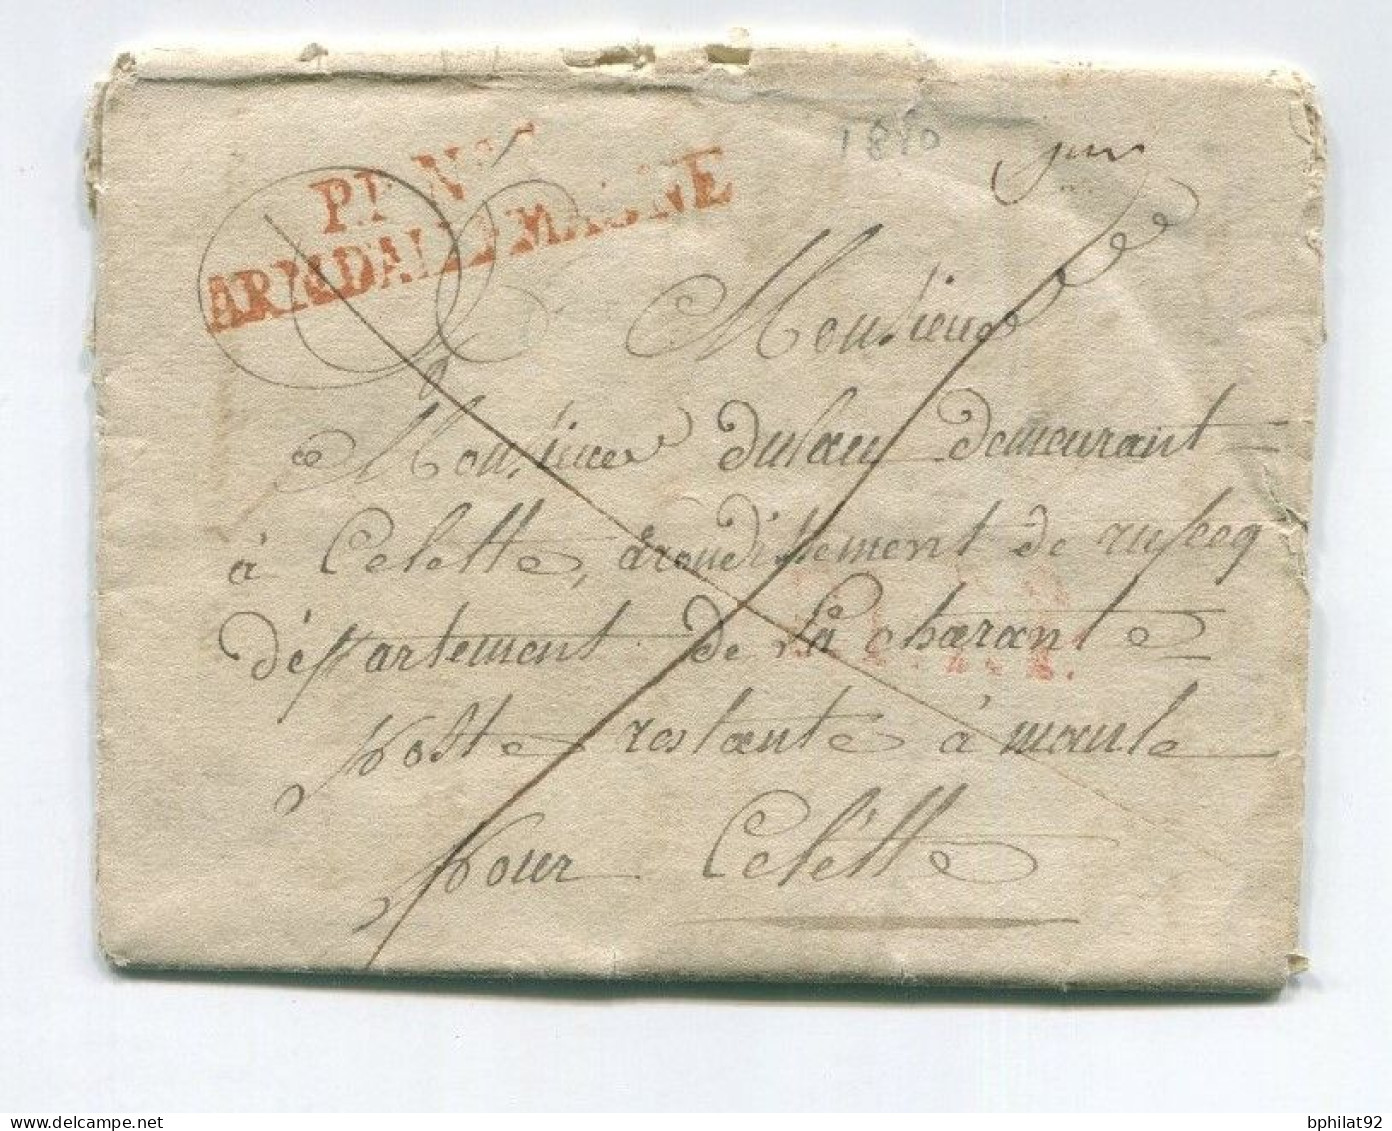 P.P. N°
ARM. D'ALLEMAGNE
1810
Monsieur
Monsieur dulau demeurant
à Celette, arondissement de rufecq
département de La charante
poste restante à mansle
pour Celétte
bphilat92